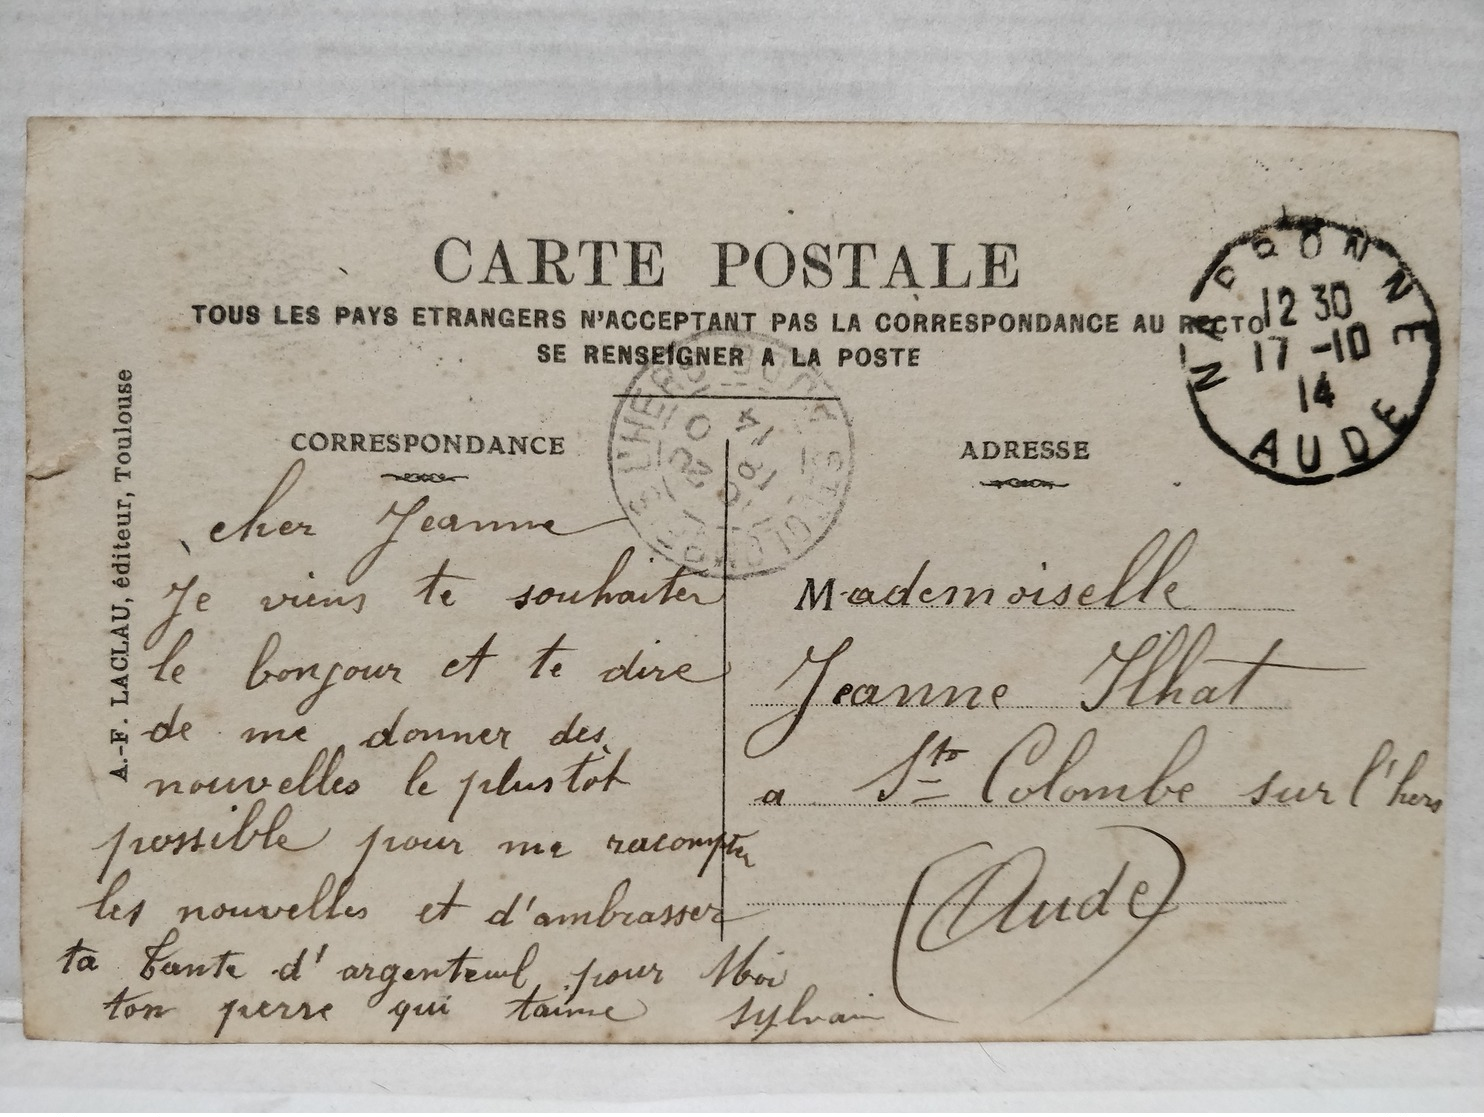 CARTE POSTALE
TOUS LES PAYS ETRANGERS N'ACCEPTANT PAS LA CORRESPONDANCE AU RECTO
SE RENSEIGNER A LA POSTE
NARBONNE
12 30
17 -10
14
AUDE
CORRESPONDANCE
ADRESSE
A.-F. LACLAU, éditeur, Toulouse
cher Jeanne
Je viens te souhaiter
le bonjour et te dire
de me donner des
nouvelles le plustôt
possible pour me racompter
les nouvelles et d'ambrasser
ta tante d'argenteuil pour Moi
ton perre qui taime Sylvain
Mademoiselle
Jeanne Ilhat
a Ste Colombe sur l'hers
(Aude)
STE COLOMBE S. L'HERS
18
14
AUDE